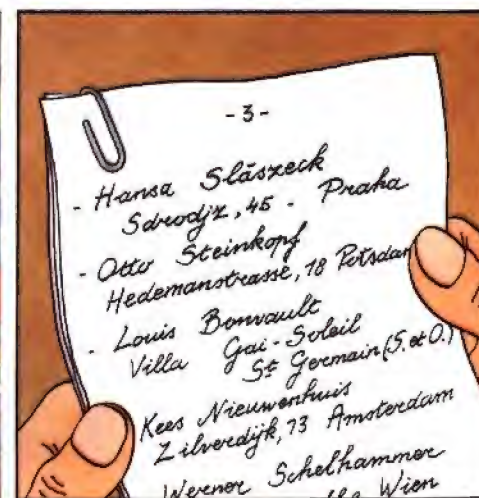 - 3 -
- Hansa Slaszeck
Sdrodjz, 45 - Praha
- Otto Steinkopf
Hedemanstrasse, 18 Potsdam
- Louis Bonvault
Villa Gai-Soleil
St Germain (S. et O.)
Kees Nieuwenhuis
Zilverdijk, 73 Amsterdam
Werner Schelhammer
Wien